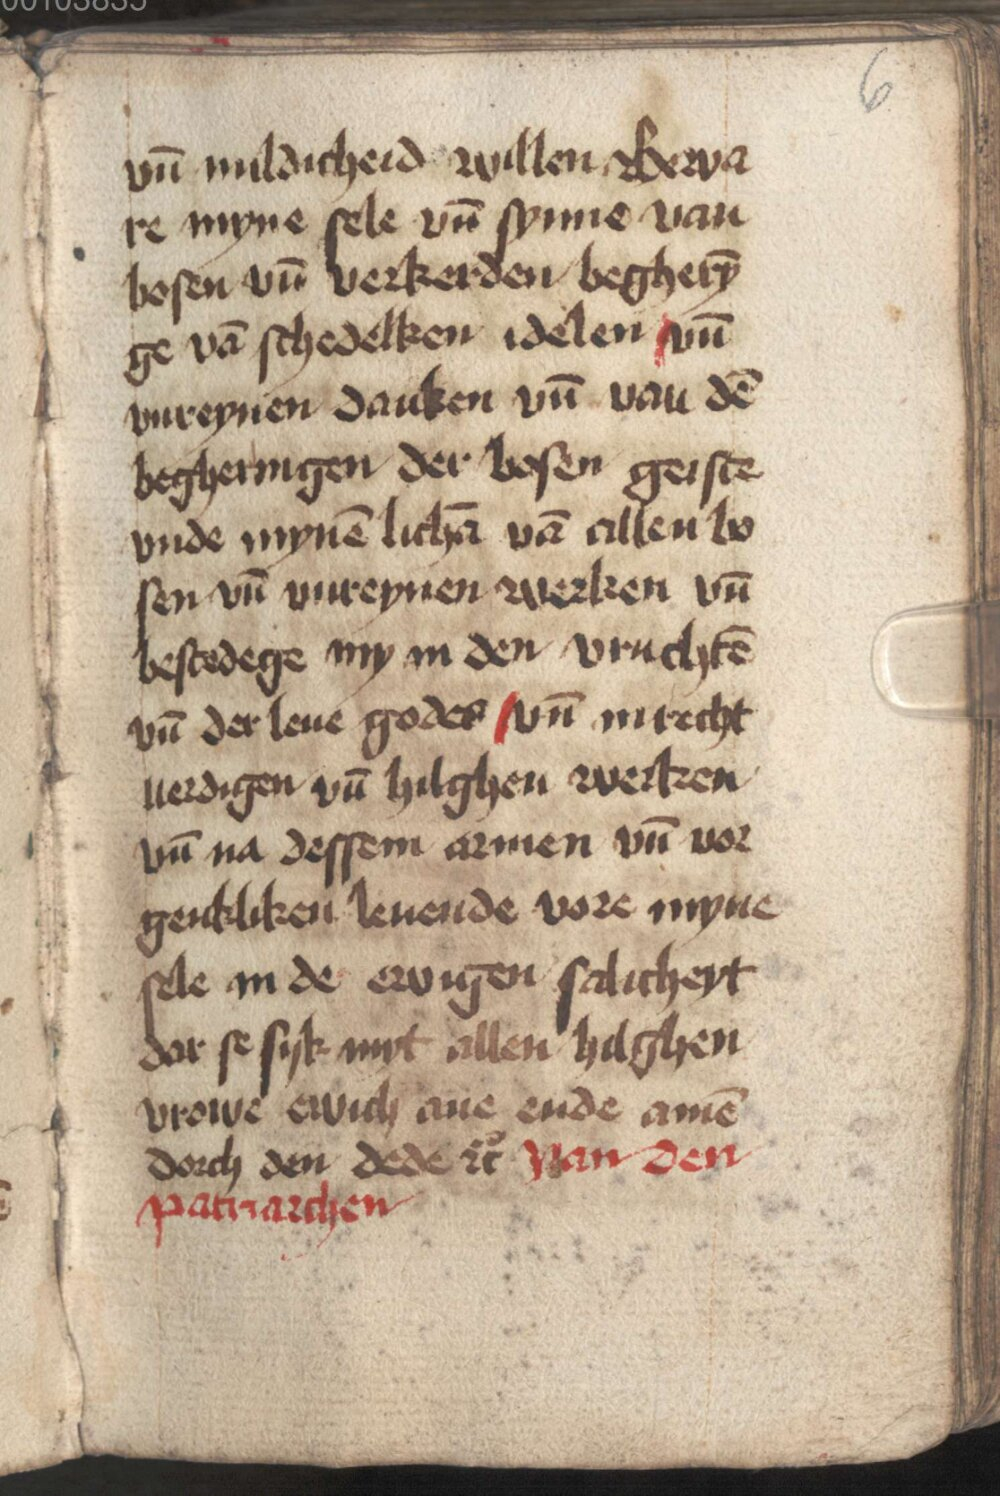 00103835
6
vn̄ mildicheid willen Bewa
re myne sele vn̄ synne van
bosen vn̄ verkerden begherȳ
ge vā schedelken idelen vn̄
vnreynen danken vn̄ van dē
begheringen der bosen geiste
vnde mynē lichā vā allen bo
sen vn̄ vnreynen werken vn̄
bestedege my in den vruchtē
vn̄ der leue godes vn̄ in recht
uerdigen vn̄ hilghen werken
vn̄ na dessem armen vn̄ vor
genkliken leuende vore myne
sele in de ewigen salicheyt
dar se syk myt allen hilghen
vrowe ewich ane ende amē
dorch den dede Van den
Patriarchen